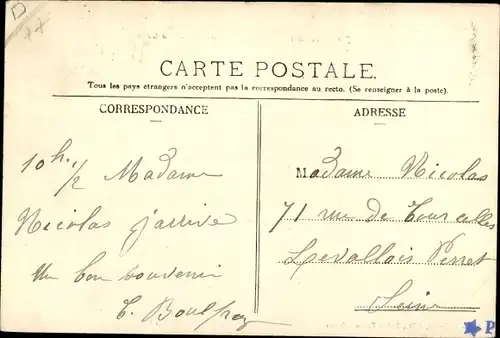 CARTE POSTALE.
Tous les pays étrangers n'acceptent pas la correspondance au recto. (Se renseigner à la poste).
CORRESPONDANCE
10h. 1/2 Madame
Nicolas j'arrive
Un bon souvenir
ADRESSE
Madame Nicolas
71 rue de
Levallois Perret
Seine
P